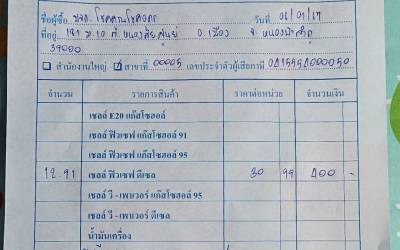 ชื่อผู้ซื้อ บจก. โชคถานโชคถกร วันที่ 06/01/17
ที่อยู่ 181 ม.10 ต. หนองภัยศูนย์ อ.เมือง จ. หนองบัวลำภู
39000
สำนักงานใหญ่ ☑ สาขาที่ 00005 เลขประจำตัวผู้เสียภาษี
จำนวน รายการสินค้า ราคาต่อหน่วย จำนวนเงิน
เชลล์ E20 แก๊สโซฮอล์
เชลล์ ฟิวเซฟ แก๊สโซฮอล์ 91
เชลล์ ฟิวเซฟ แก๊สโซฮอล์ 95
12.91 เชลล์ ฟิวเซฟ ดีเซล 30 99 400 -
เชลล์ วี - เพาเวอร์ แก๊สโซฮอล์ 95
เชลล์ วี - เพาเวอร์ ดีเซล
น้ำมันเครื่อง